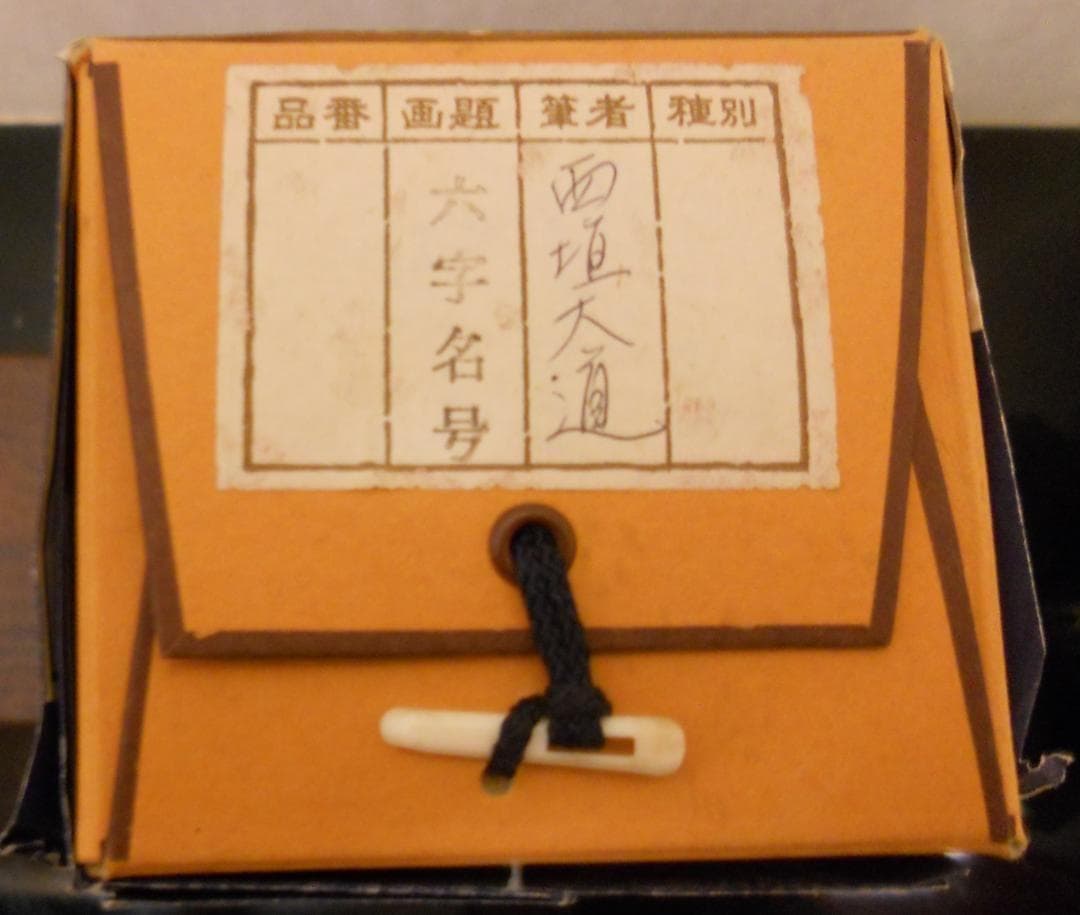 品番
画題
筆者
種別
六字名号
西垣大道